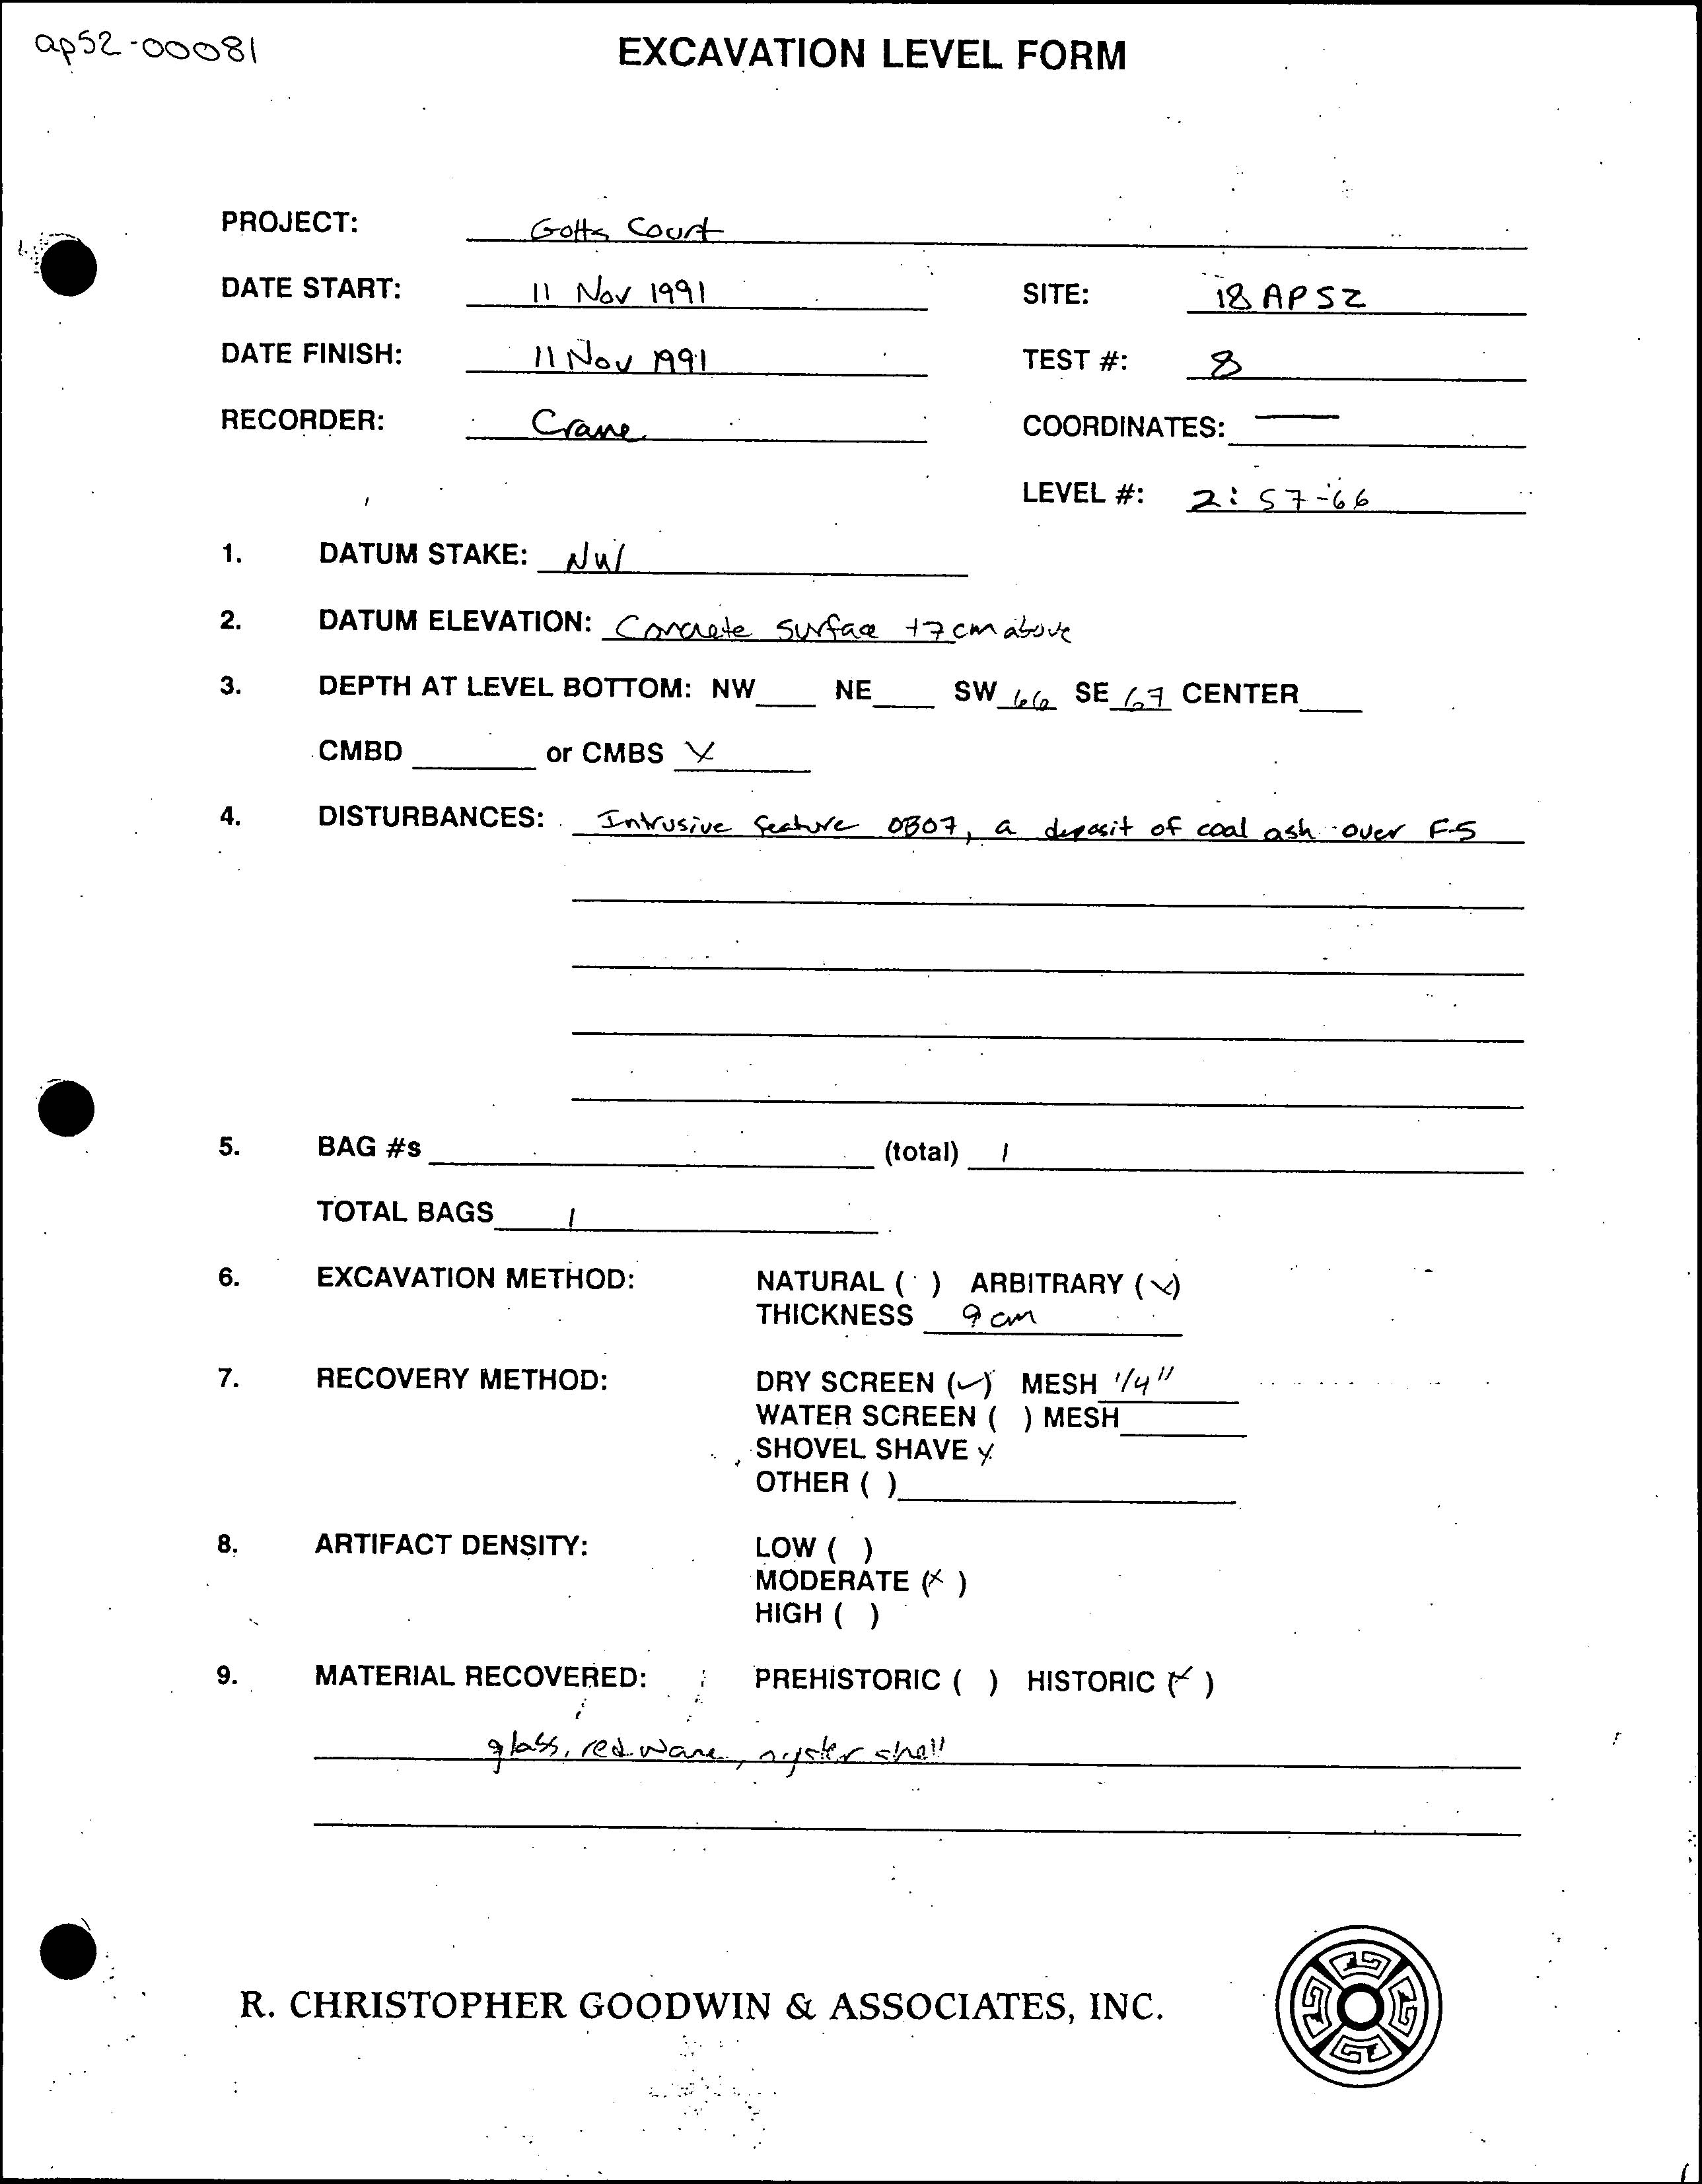 ap52-00081
EXCAVATION LEVEL FORM
PROJECT: Gotts Court
DATE START: 11 Nov 1991 SITE: 18 AP 52
DATE FINISH: 11 Nov 1991 TEST #: 8
RECORDER: Crane COORDINATES: —
LEVEL #: 2: 57-66
1. DATUM STAKE: NW
2. DATUM ELEVATION: Concrete surface +7 cm above
3. DEPTH AT LEVEL BOTTOM: NW____ NE____ SW 66 SE 67 CENTER____
CMBD ____ or CMBS X
4. DISTURBANCES: Intrusive feature 0807, a deposit of coal ash over F-5
5. BAG #s ____ (total) 1
TOTAL BAGS 1
6. EXCAVATION METHOD: NATURAL ( ) ARBITRARY (X)
THICKNESS 9 cm
7. RECOVERY METHOD: DRY SCREEN (✓) MESH 1/4"
WATER SCREEN ( ) MESH____
SHOVEL SHAVE X
OTHER ( )____
8. ARTIFACT DENSITY: LOW ( )
MODERATE (X )
HIGH ( )
9. MATERIAL RECOVERED: PREHISTORIC ( ) HISTORIC (X )
glass, redware, oyster shell
R. CHRISTOPHER GOODWIN & ASSOCIATES, INC.